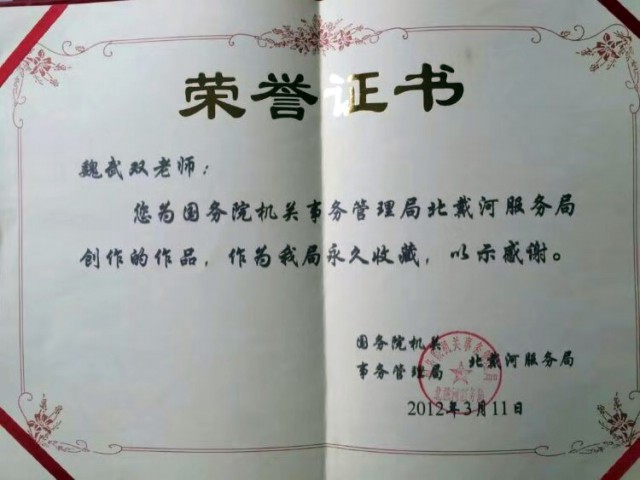 荣誉证书
魏武双老师：
您为国务院机关事务管理局北戴河服务局
创作的作品，作为我局永久收藏，以示感谢。
国务院机关
事务管理局 北戴河服务局
2012年3月11日